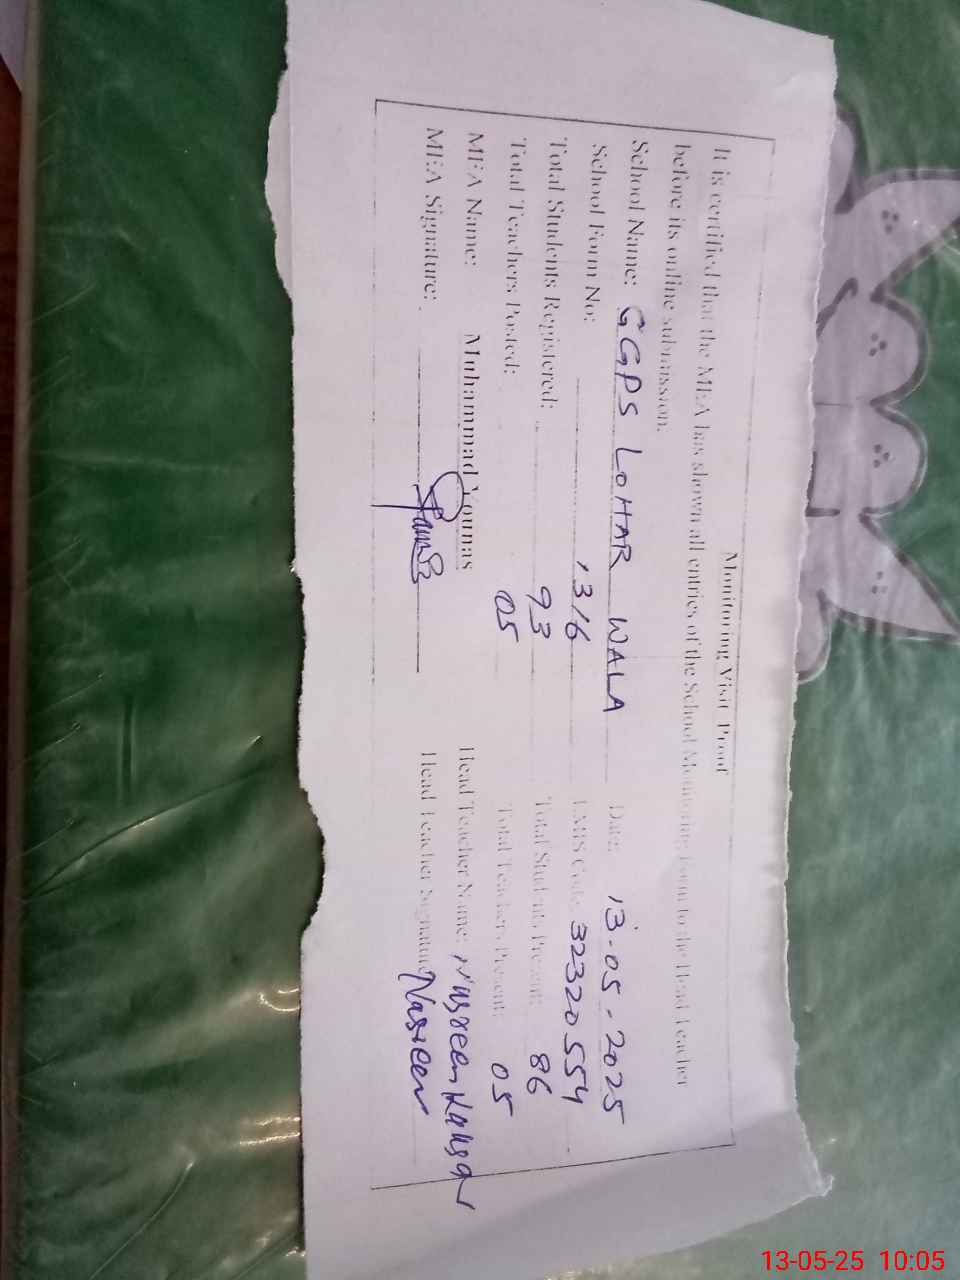 Monitoring Visit Proof
It is certified that the MEA has shown all entries of the School Monitoring Form to the Head Teacher
before its online submission.
School Name: GGPS LOHAR WALA Date: 13-05-2025
School Form No: 1316 EMIS Code: 32320554
Total Students Registered: 93 Total Students Present: 86
Total Teachers Posted: 05 Total Teachers Present: 05
MEA Name: Muhammad Younas Head Teacher Name: Nasreen Kausar
MEA Signature: Head Teacher Signature: Nasreen
13-05-25 10:05